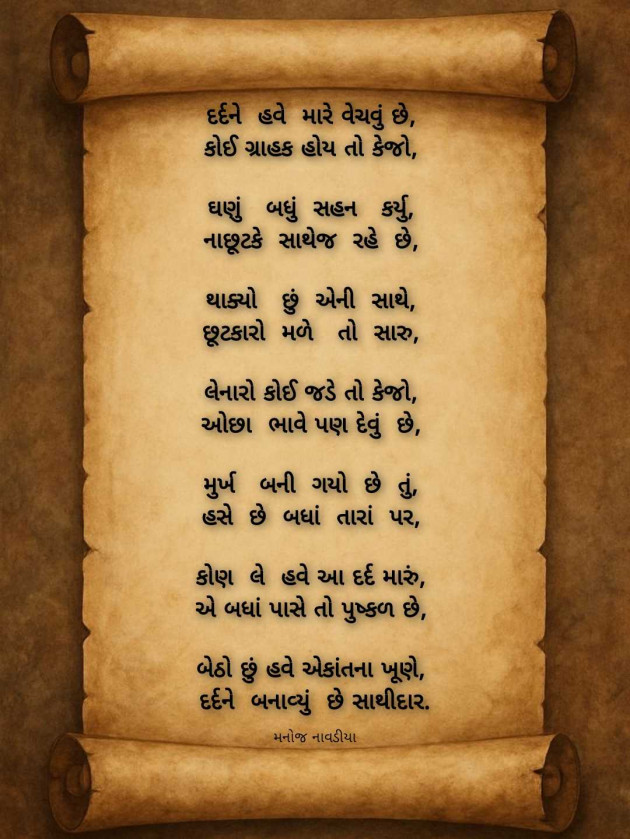 દર્દને હવે મારે વેચવું છે,
કોઈ ગ્રાહક હોય તો કેજો,
ઘણું બધું સહન કર્યુ,
નાછૂટકે સાથેજ રહે છે,
થાક્યો છું એની સાથે,
છૂટકારો મળે તો સારુ,
લેનારો કોઈ જડે તો કેજો,
ઓછા ભાવે પણ દેવું છે,
મુર્ખ બની ગયો છે તું,
હસે છે બધાં તારાં પર,
કોણ લે હવે આ દર્દ મારું,
એ બધાં પાસે તો પુષ્કળ છે,
બેઠો છું હવે એકાંતના ખૂણે,
દર્દને બનાવ્યું છે સાથીદાર.
મનોજ નાવડીયા